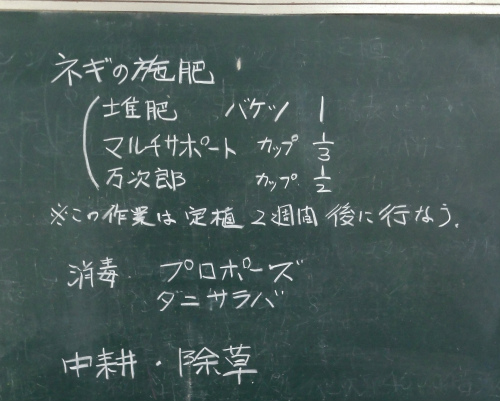 ネギの施肥
堆肥 バケツ 1
マルチサポート カップ 1/3
万次郎 カップ 1/2
※この作業は定植2週間後に行なう。
消毒 プロポーズ
ダニサラバ
中耕・除草